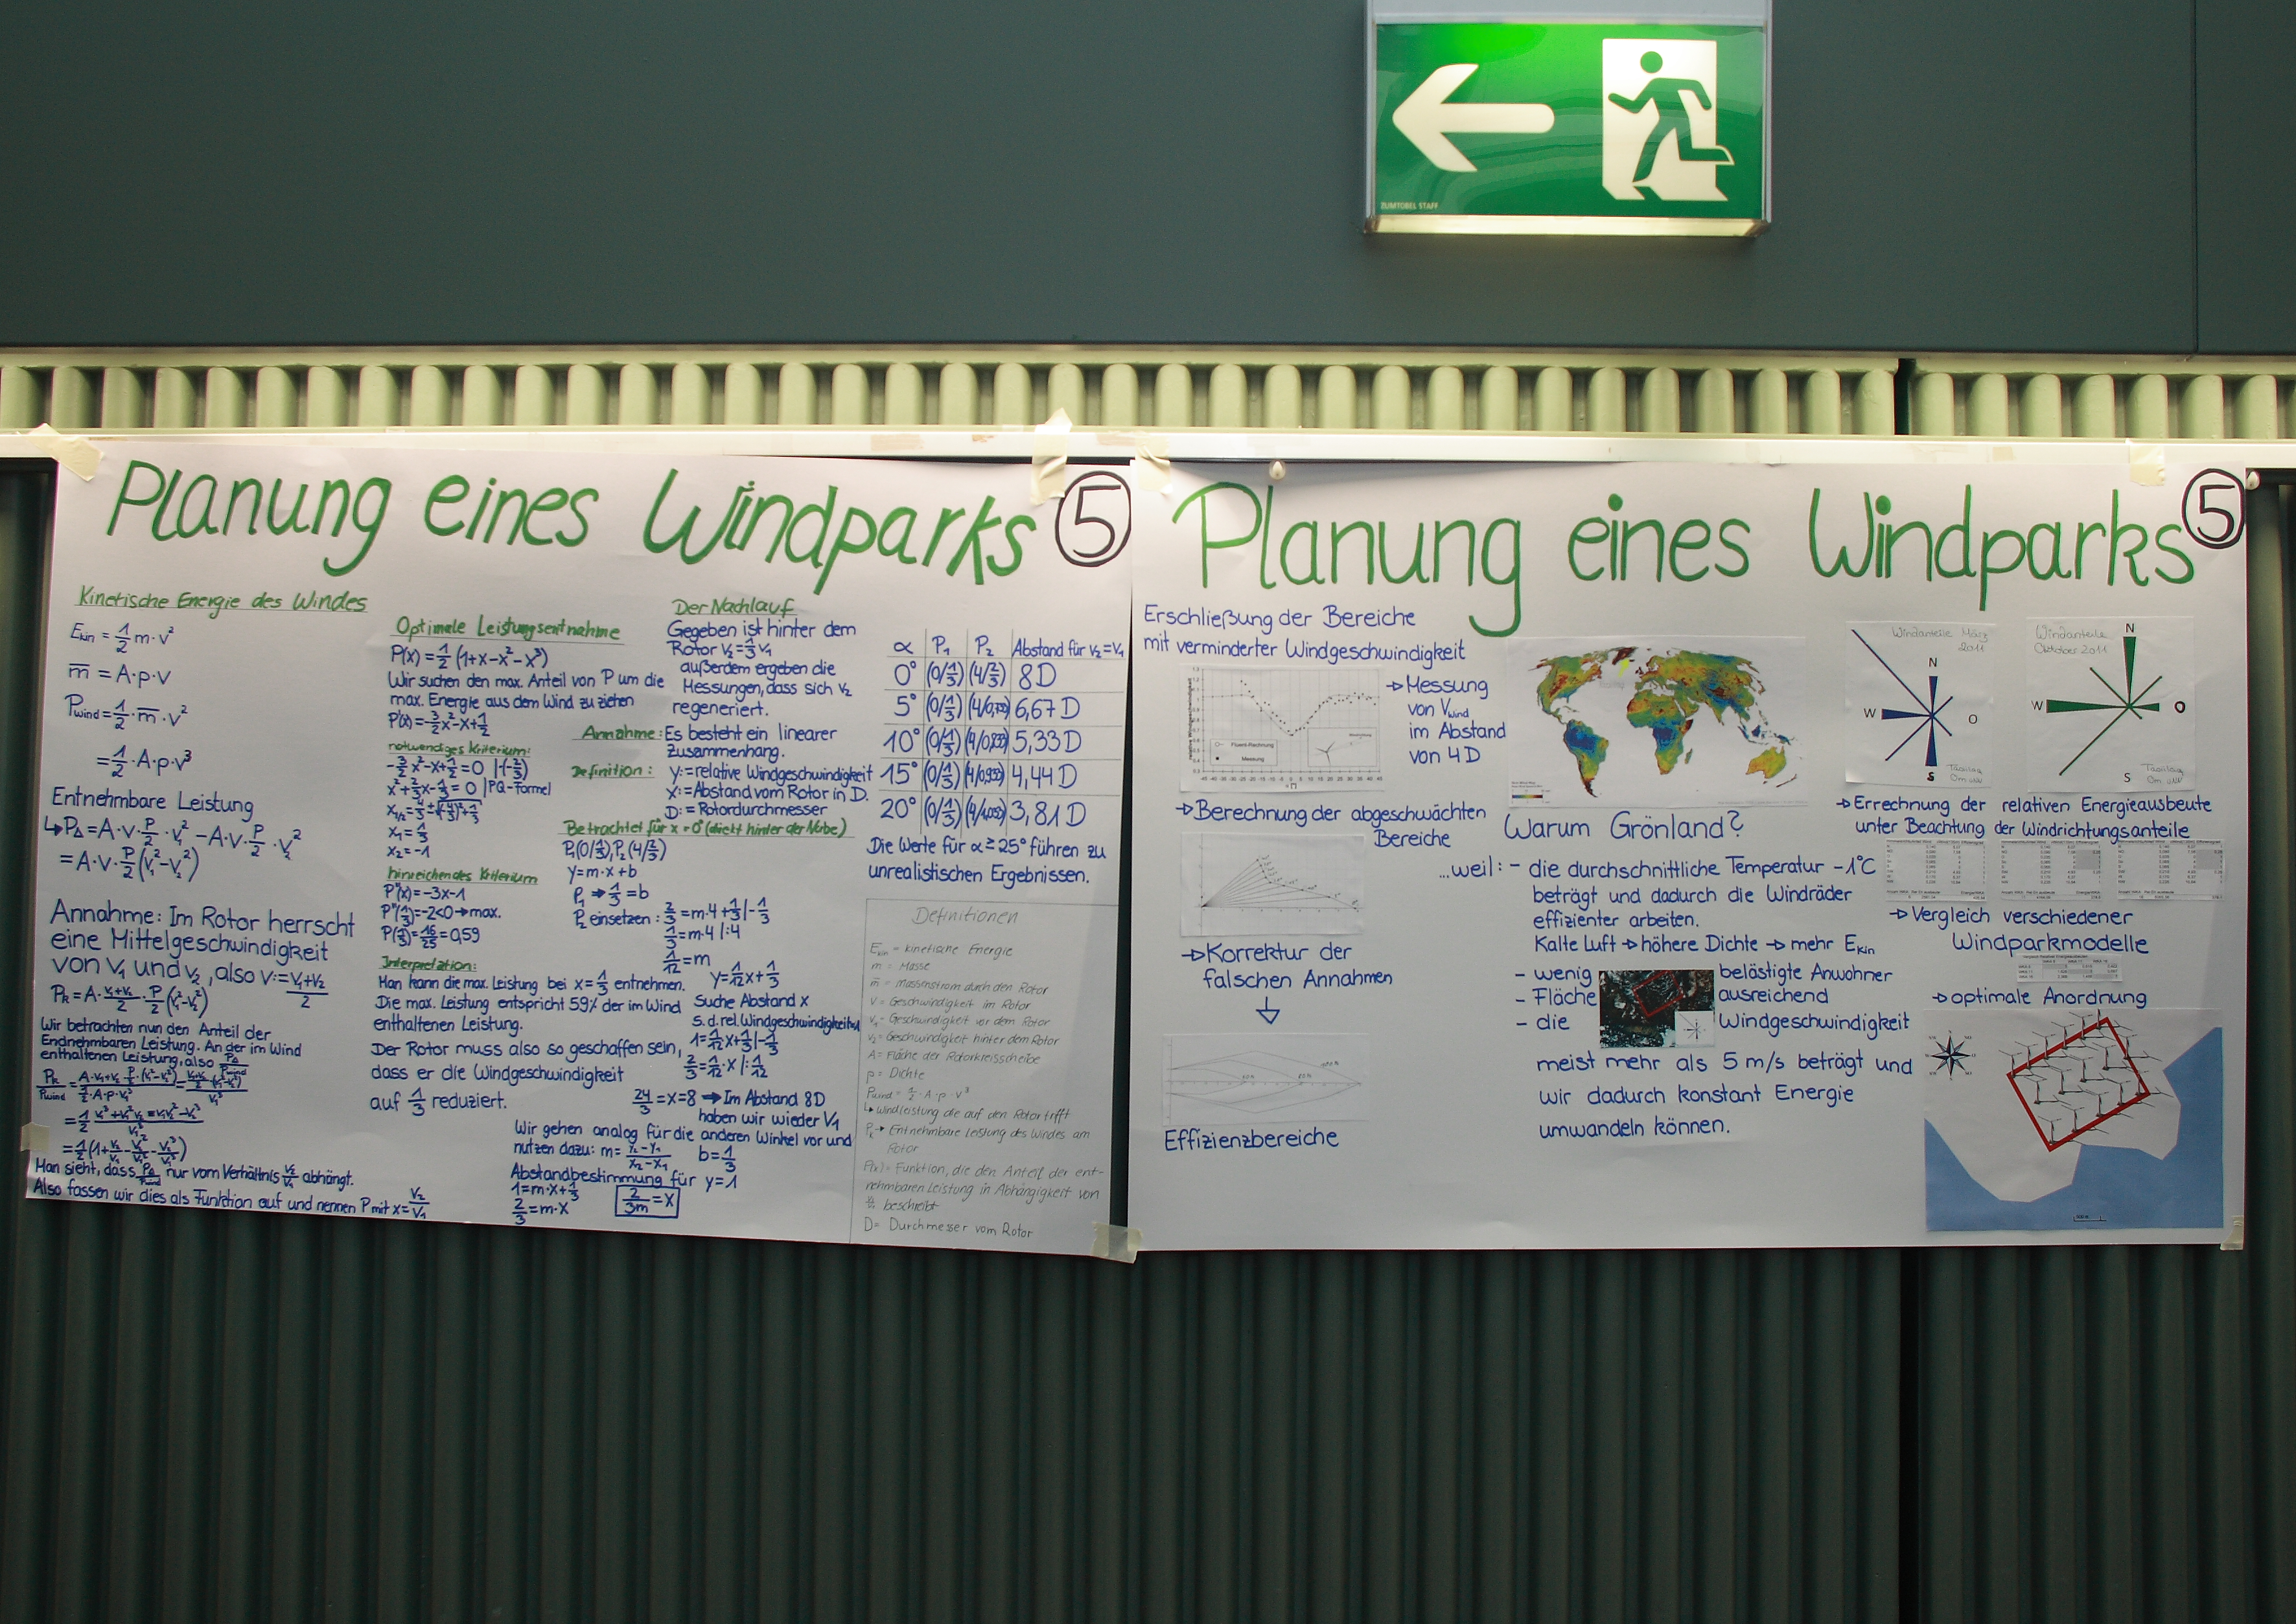 ZUMTOBEL STAFF
Planung eines Windparks
5
Kinetische Energie des Windes
E_kin = 1/2 m·v²
m̅ = A·p·v
P_wind = 1/2·m̅·v²
= 1/2·A·p·v³
Entnehmbare Leistung
↳P_A = A·v·p/2·v₁² − A·v·p/2·v₂²
= A·v·p/2(v₁²−v₂²)
Annahme: Im Rotor herrscht
eine Mittelgeschwindigkeit
von v₁ und v₂, also v:= (v₁+v₂)/2
P_R = A·(v₁+v₂)/2·p/2(v₁²−v₂²)
Wir betrachten nun den Anteil der
Endnehmbaren Leistung. An der im Wind
enthaltenen Leistung, also
= 1/2(1+v₂/v₁−v₂²/v₁²−v₂³/v₁³)
Man sieht, dass nur vom Verhältnis v₂/v₁ abhängt.
Also fassen wir dies als Funktion auf und nennen P mit x = v₂/v₁
Optimale Leistungsentnahme
P(x) = 1/2 (1+x−x²−x³)
Wir suchen den max. Anteil von P um die
max. Energie aus dem Wind zu ziehen
P'(x) = −3/2x²−x+1/2
notwendiges Kriterium:
−3/2x²−x+1/2 = 0 |·(−2/3)
x²+2/3x−1/3 = 0 | PQ-Formel
x₁ = 1/3
x₂ = −1
hinreichendes Kriterium
P''(x) = −3x−1
P''(1/3) = −2<0 → max.
P(1/3) = 16/25 = 0,59
Interpretation:
Man kann die max. Leistung bei x = 1/3 entnehmen.
Die max. Leistung entspricht 59% der im Wind
enthaltenen Leistung.
Der Rotor muss also so geschaffen sein,
dass er die Windgeschwindigkeit
auf 1/3 reduziert.
Der Nachlauf
Gegeben ist hinter dem
Rotor v₂ = 1/3 v₁
außerdem ergeben die
Messungen, dass sich v₂
regeneriert.
Annahme: Es besteht ein linearer
Zusammenhang.
Definition: y:= relative Windgeschwindigkeit
x:= Abstand vom Rotor in D.
D:= Rotordurchmesser
Betrachtet für α = 0° (direkt hinter der Narbe)
P₁(0/1/3), P₂(4/2/3)
y = m·x + b
P₁ → 1/3 = b
P₂ einsetzen: 2/3 = m·4 + 1/3 |−1/3
1/3 = m·4 |:4
1/12 = m
y = 1/12x + 1/3
Suche Abstand x
s.d. rel. Windgeschwindigkeit
1 = 1/12x + 1/3 |−1/3
2/3 = 1/12·x |:1/12
24/3 = x = 8 → Im Abstand 8D
haben wir wieder V₁
Wir gehen analog für die anderen Winkel vor und
nutzen dazu: m = (y₂−y₁)/(x₂−x₁) b = 1/3
Abstandbestimmung für y = 1
1 = m·x + 1/3
2/3 = m·x
2/3m = x
α P₁ P₂ Abstand für v₂=v₁
0° (0/1/3) (4/2/3) 8D
5° (0/1/3) 6,67 D
10° (0/1/3) 5,33D
15° (0/1/3) 4,44 D
20° (0/1/3) 3,81 D
Die Werte für α ≥ 25° führen zu
unrealistischen Ergebnissen.
Definitionen
E_kin = kinetische Energie
m = Masse
m̅ = Massenstrom durch den Rotor
v = Geschwindigkeit im Rotor
v₁ = Geschwindigkeit vor dem Rotor
v₂ = Geschwindigkeit hinter dem Rotor
A = Fläche der Rotorkreisscheibe
p = Dichte
P_wind = 1/2·A·p·v³
↳ Windleistung die auf den Rotor trifft
P_R → Entnehmbare Leistung des Windes am
Rotor
P(x) = Funktion, die den Anteil der ent-
nehmbaren Leistung in Abhängigkeit von
v₂/v₁ beschreibt
D = Durchmesser vom Rotor
Planung eines Windparks
5
Erschließung der Bereiche
mit verminderter Windgeschwindigkeit
Fluent-Rechnung
Messung
→ Messung
von V_Wind
im Abstand
von 4D
→ Berechnung der abgeschwächten
Bereiche
→ Korrektur der
falschen Annahmen
Effizienzbereiche
Warum Grönland?
...weil: – die durchschnittliche Temperatur −1°C
beträgt und dadurch die Windräder
effizienter arbeiten.
Kalte Luft → höhere Dichte → mehr E_kin
– wenig belästigte Anwohner
– Fläche ausreichend
– die Windgeschwindigkeit
meist mehr als 5 m/s beträgt und
wir dadurch konstant Energie
umwandeln können.
Windanteile März
2011
N
W O
S
Tasiilaq
Windanteile
Oktober 2011
N
W O
S
Tasiilaq
→ Errechnung der relativen Energieausbeute
unter Beachtung der Windrichtungsanteile
→ Vergleich verschiedener
Windparkmodelle
→ optimale Anordnung